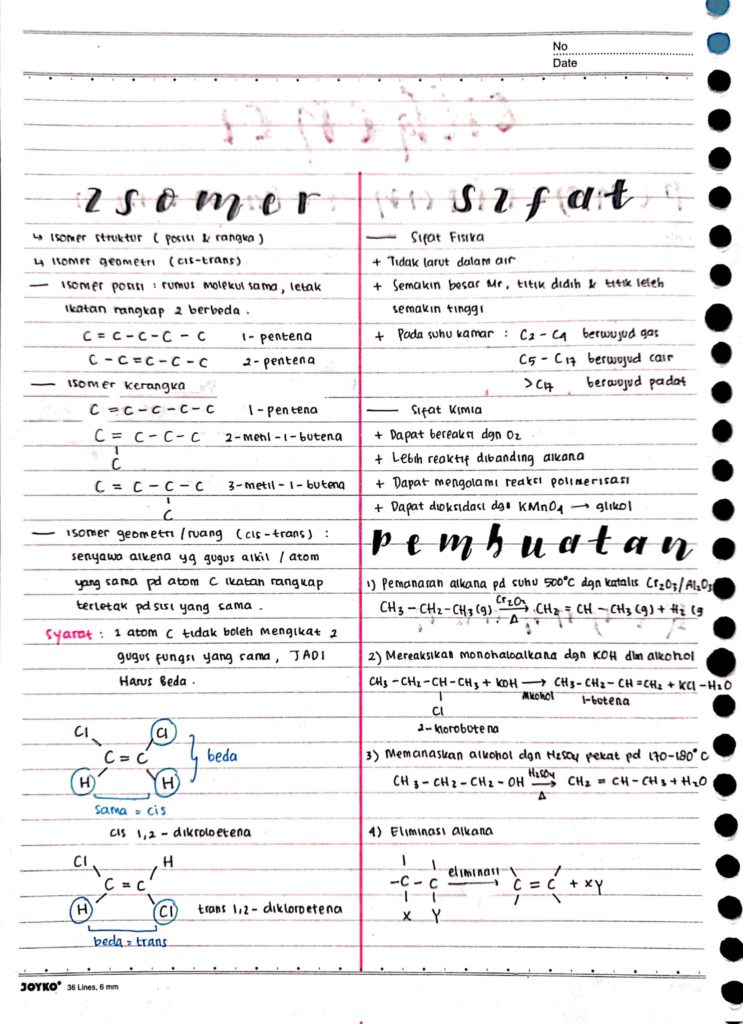 No
Date
Isomer
↳ Isomer struktur ( posisi & rangka )
↳ Isomer geometri (cis-trans)
— Isomer posisi : rumus molekul sama, letak
ikatan rangkap 2 berbeda.
C = C - C - C - C 1 - pentena
C - C = C - C - C 2 - pentena
— Isomer kerangka
C = C - C - C - C 1 - pentena
C = C - C - C 2 - metil - 1 - butena
C
C = C - C - C 3 - metil - 1 - butena
C
— Isomer geometri / ruang (cis-trans) :
senyawa alkena yg gugus alkil / atom
yang sama pd atom C ikatan rangkap
terletak pd sisi yang sama.
Syarat : 1 atom C tidak boleh mengikat 2
gugus fungsi yang sama, JADI
Harus Beda.
Cl Cl
C = C beda
H H
sama = cis
cis 1,2 - dikroloetena
Cl H
C = C
H Cl trans 1,2 - dikloroetena
beda = trans
Sifat
— Sifat Fisika
+ Tidak larut dalam air
+ Semakin besar Mr, titik didih & titik leleh
semakin tinggi
+ Pada suhu kamar : C2 - C4 berwujud gas
C5 - C17 berwujud cair
> C17 berwujud padat
— Sifat Kimia
+ Dapat bereaksi dgn O2
+ Lebih reaktif dibanding alkana
+ Dapat mengalami reaksi polimerisasi
+ Dapat dioksidasi dgn KMnO4 → glikol
Pembuatan
1) Pemanasan alkana pd suhu 500°C dgn katalis Cr2O3/Al2O3
CH3 - CH2 - CH3 (g) Cr2O3 → Δ CH2 = CH - CH3 (g) + H2 (g
2) Mereaksikan monohaloalkana dgn KOH dlm alkohol
CH3 - CH2 - CH - CH3 + KOH → alkohol CH3 - CH2 - CH = CH2 + KCl - H2O
Cl 1-butena
2 - klorobutena
3) Memanaskan alkohol dgn H2SO4 pekat pd 170-180°C
CH3 - CH2 - CH2 - OH H2SO4 → Δ CH2 = CH - CH3 + H2O
4) Eliminasi alkana
- C - C eliminasi → C = C + XY
X Y
JOYKO® 36 Lines, 6 mm